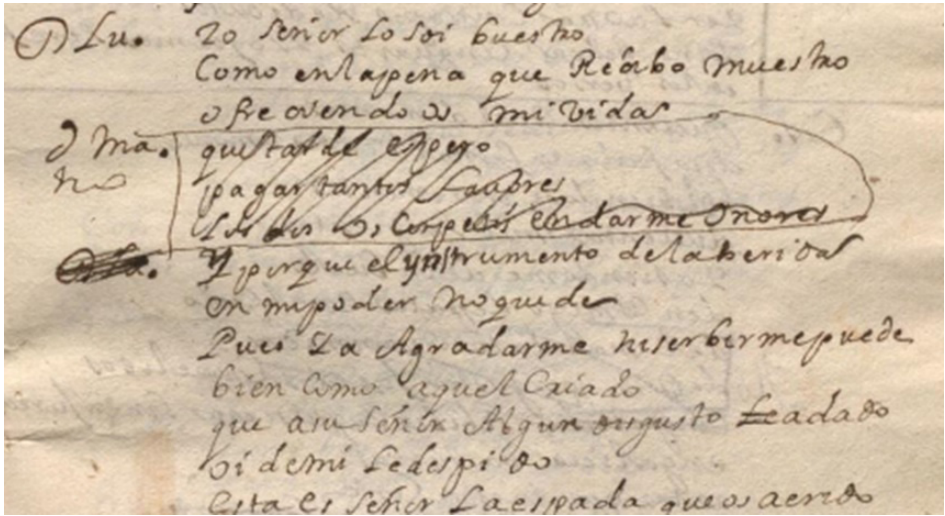 D Lu. Yo señor lo soi buestro
Como en la pena que Reçibo muestro
ofreçiendo os mi vida
d Ma. que tarde espero
no pagar tantos fabores
los dos os Conpetís en darme onores
Y porque el ynstrumento de la herida
en mi poder no quede
Pues ya Agradarme ni serbirme puede
bien Como aquel Criado
que a su señor Algun disgusto le a dado
oi de mi le despido
esta es señor la espada que os a erido